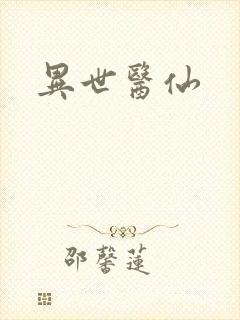 異世醫仙
邵馨蓮